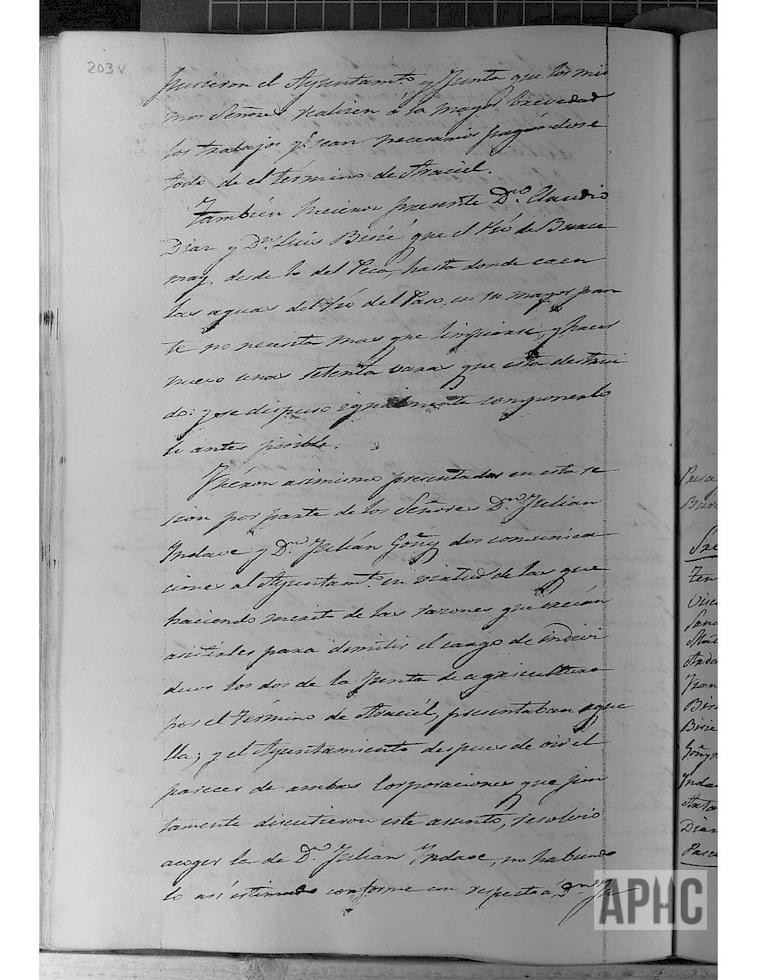 203v
pusieron el Ayuntamto. y Junta que los mis
mos Señores realicen á la mayor brevedad
los trabajos qe. sean necesarios pagandose
todo de el término de Araciel.
También hicieron presente Dn. Claudio
Diaz y Dn. Luis Birié que el rio de
may, desde lo del hasta donde caen
las aguas del rio del Paso, en su mayor par
te no necesita mas que limpiarse, y hacer
nuevo unas setenta varas que está destrui
do: y se dispuso igualmente componerlo
lo antes posible.
Fueron asimismo presentadas en esta se
sion por parte de los Señores Dn. Julian
Indave y Dn. Julián Goñi, dos comunica
ciones al Ayuntamto. en virtud de las que
haciendo mérito de las razones que creían
asistirles para dimitir el cargo de indivi
duos los dos de la Junta de agricultura
por el término de Araciel, presentaban aque
lla; y el Ayuntamiento despues de oir el
parecer de ambas Corporaciones que jun
tamente discutieron este asunto, resolvió
acoger la de Dn. Julian Indave, no habiendo
lo así estimado conforme con respecto á Dn.
APHC